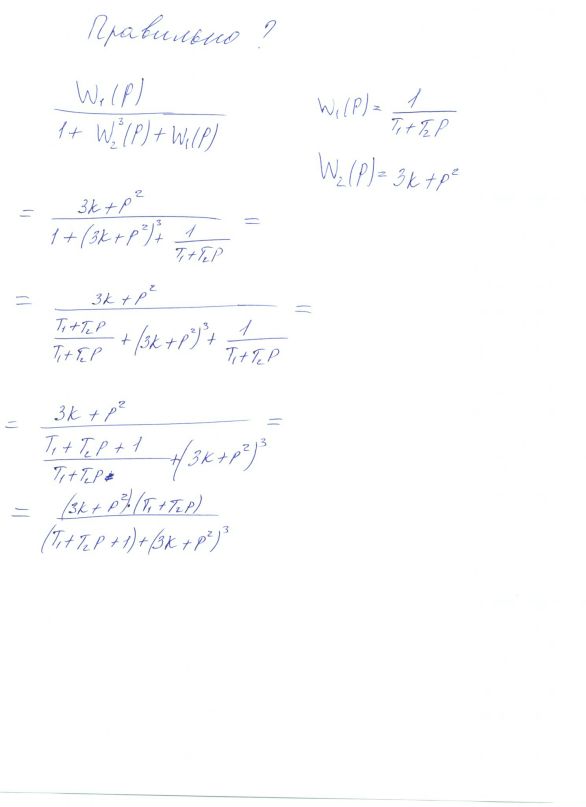 Правильно ?
W₁(P) / (1 + W₂³(P) + W₁(P))
W₁(P) = 1 / (T₁+T₂P)
W₂(P) = 3K+P²
= (3K+P²) / (1+(3K+P²)³ + 1/(T₁+T₂P)) =
= (3K+P²) / ((T₁+T₂P)/(T₁+T₂P) + (3K+P²)³ + 1/(T₁+T₂P)) =
= (3K+P²) / ((T₁+T₂P+1)/(T₁+T₂P) + (3K+P²)³) =
= (3K+P²)·(T₁+T₂P) / ((T₁+T₂P+1)+(3K+P²)³)